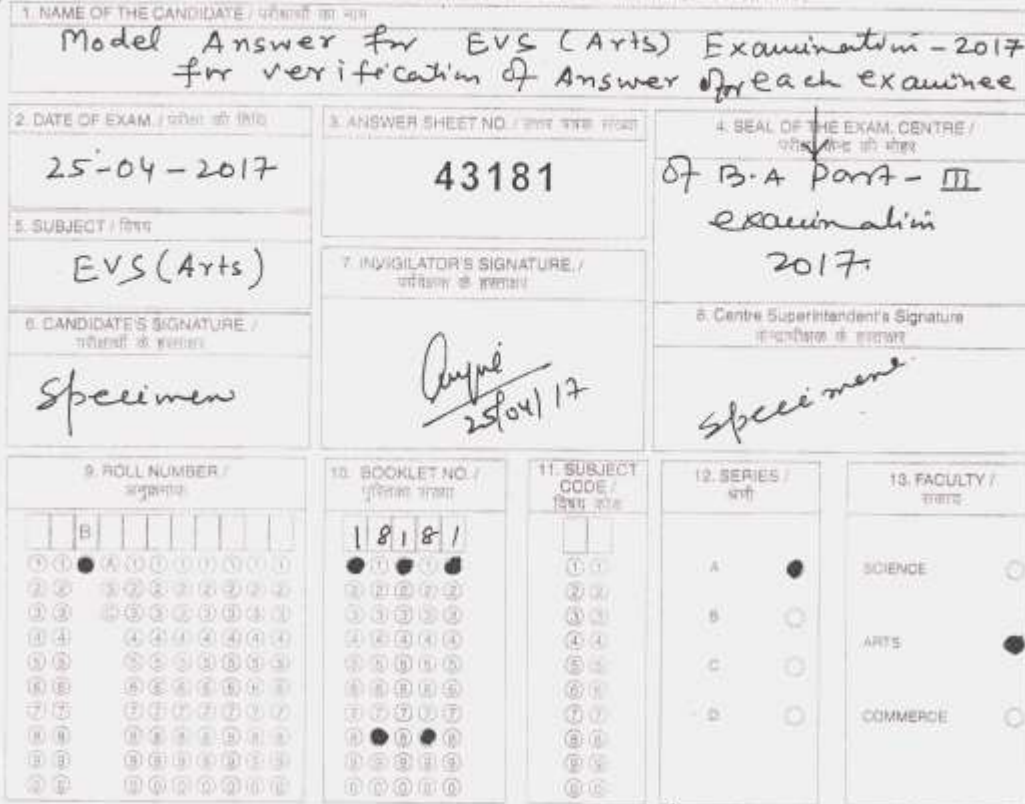 1. NAME OF THE CANDIDATE / परीक्षार्थी का नाम
Model Answer for EVS (Arts) Examination - 2017
for verification of Answer of each examinee
2. DATE OF EXAM. / परीक्षा की तिथि
25-04-2017
3. ANSWER SHEET NO. / उत्तर पत्रक संख्या
43181
4. SEAL OF THE EXAM. CENTRE /
परीक्षा केन्द्र की मोहर
of B.A Part - III
examination
2017.
5. SUBJECT / विषय
EVS (Arts)
6. CANDIDATE'S SIGNATURE /
परीक्षार्थी के हस्ताक्षर
Specimen
7. INVIGILATOR'S SIGNATURE. /
25/04/17
8. Centre Superintendent's Signature
केन्द्राधीक्षक के हस्ताक्षर
Specimen
9. ROLL NUMBER /
अनुक्रमांक
B
10. BOOKLET NO. /
पुस्तिका संख्या
1 8 1 8 1
11. SUBJECT
CODE /
विषय कोड
12. SERIES /
श्रेणी
A
B
C
D
13. FACULTY /
संकाय
SCIENCE
ARTS
COMMERCE